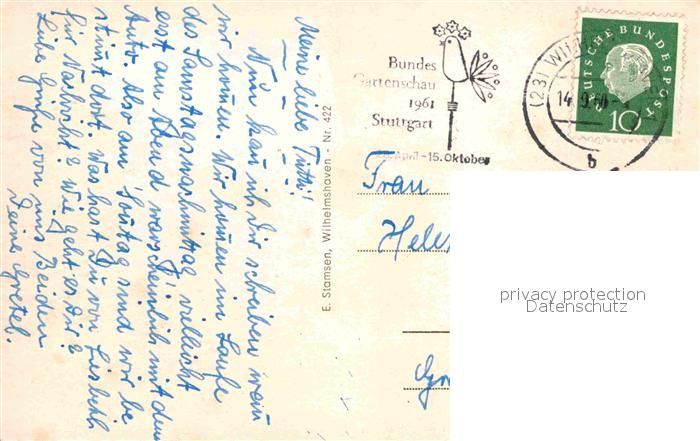 Meine liebe Tutti!
Nun kan ich Dir schreiben wan
wir komen. Wir komen im Laufe
des Samstagsnachmittag villeicht
erst am Abend warscheinlich mit dem
Auto. Also am Sontag sind wir be
stimt dort. Was hast Du von Lisbeth
für Nachricht? Wie geht es Dir?
Liebe Grüße von uns Beiden
Deine Gretel.
E. Stamsen, Wilhelmshaven - Nr. 422
Bundes
Gartenschau
1961
Stuttgart
April - 15. Oktober
(23) WILH
14.9.60
b
DEUTSCHE BUNDESPOST
10
Frau
Hele
privacy protection
Datenschutz